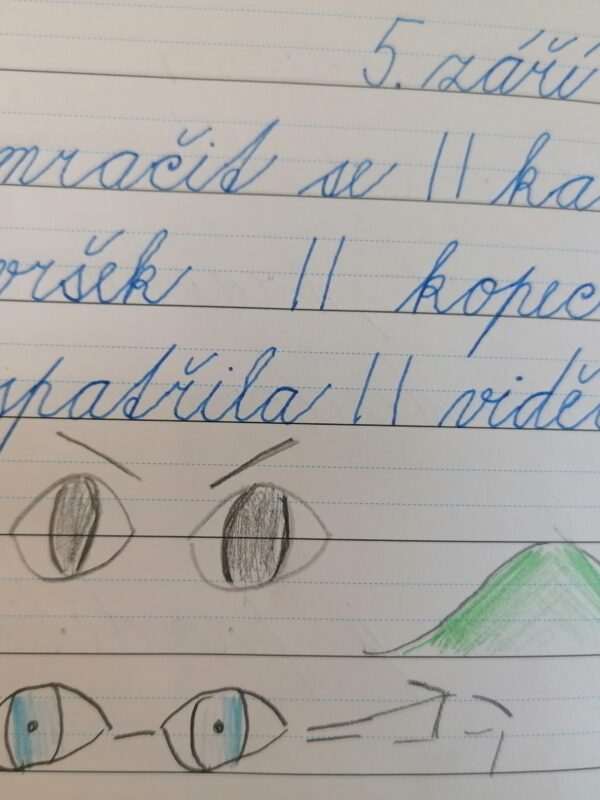 5. září
mračit se || ka
vršek || kopec
spatřila || viděl